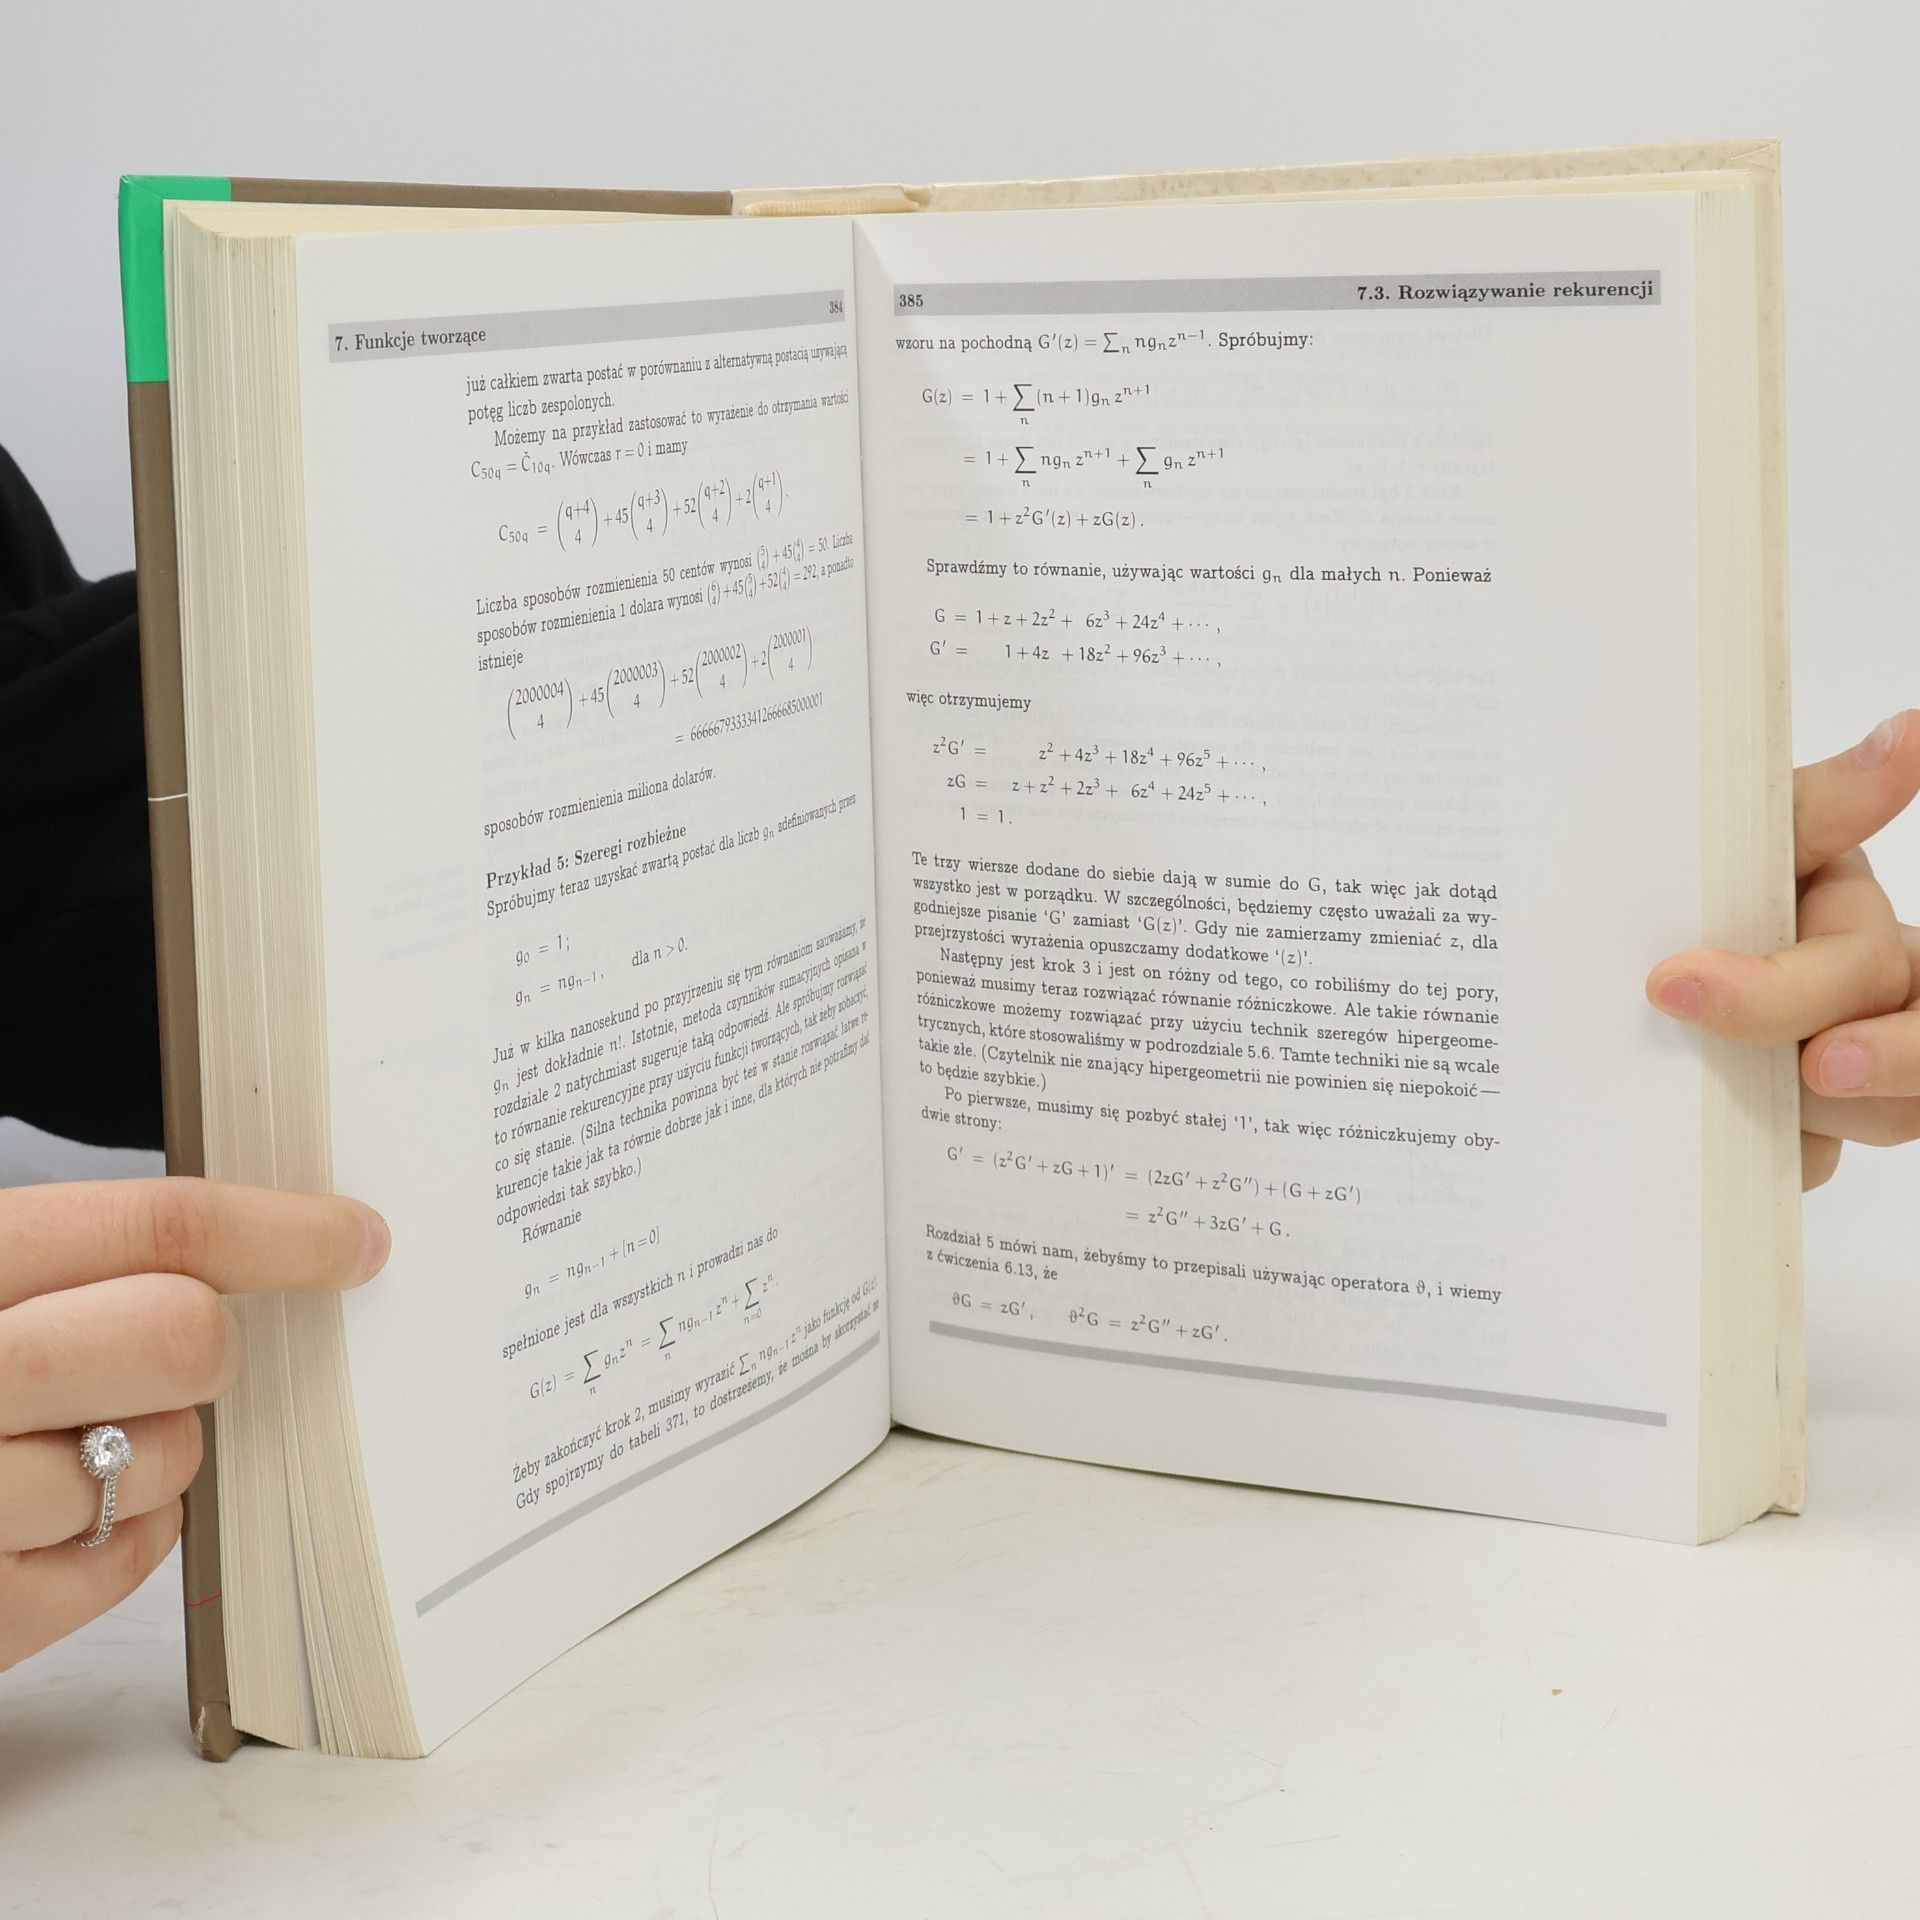 7. Funkcje tworzące 384
już całkiem zwarta postać w porównaniu z alternatywną postacią używającą
potęg liczb zespolonych.
Możemy na przykład zastosować to wyrażenie do otrzymania wartości
C₅₀q = Č₁₀q. Wówczas r = 0 i mamy
C₅₀q = (q+4 4) + 45(q+3 4) + 52(q+2 4) + 2(q+1 4).
Liczba sposobów rozmienienia 50 centów wynosi (5 4) + 45(4 4) = 50. Liczba
sposobów rozmienienia 1 dolara wynosi (6 4) + 45(5 4) + 52(4 4) = 292, a ponadto
istnieje
(2000004 4) + 45(2000003 4) + 52(2000002 4) + 2(2000001 4)
= 66666793333412666685000001
sposobów rozmienienia miliona dolarów.
Przykład 5: Szeregi rozbieżne
Spróbujmy teraz uzyskać zwartą postać dla liczb gₙ zdefiniowanych przez
g₀ = 1;
gₙ = ngₙ₋₁, dla n > 0.
Już w kilka nanosekund po przyjrzeniu się tym równaniom zauważamy, że
gₙ jest dokładnie n!. Istotnie, metoda czynników sumacyjnych opisana w
rozdziale 2 natychmiast sugeruje taką odpowiedź. Ale spróbujmy rozwiązać
to równanie rekurencyjne przy użyciu funkcji tworzących, tak żeby zobaczyć,
co się stanie. (Silna technika powinna być też w stanie rozwiązać łatwe re-
kurencje takie jak ta równie dobrze jak i inne, dla których nie potrafimy dać
odpowiedzi tak szybko.)
Równanie
gₙ = ngₙ₋₁ + [n=0]
spełnione jest dla wszystkich n i prowadzi nas do
G(z) = ∑ₙ gₙzⁿ = ∑ₙ ngₙ₋₁zⁿ + ∑ₙ₌₀ zⁿ.
Żeby zakończyć krok 2, musimy wyrazić ∑ₙ ngₙ₋₁zⁿ jako funkcję od G(z).
Gdy spojrzymy do tabeli 371, to dostrzeżemy, że można by skorzystać ze
385 7.3. Rozwiązywanie rekurencji
wzoru na pochodną G′(z) = ∑ₙ ngₙzⁿ⁻¹. Spróbujmy:
G(z) = 1 + ∑ₙ (n+1)gₙ zⁿ⁺¹
= 1 + ∑ₙ ngₙ zⁿ⁺¹ + ∑ₙ gₙ zⁿ⁺¹
= 1 + z²G′(z) + zG(z).
Sprawdźmy to równanie, używając wartości gₙ dla małych n. Ponieważ
G = 1 + z + 2z² + 6z³ + 24z⁴ + ··· ,
G′ = 1 + 4z + 18z² + 96z³ + ··· ,
więc otrzymujemy
z²G′ = z² + 4z³ + 18z⁴ + 96z⁵ + ··· ,
zG = z + z² + 2z³ + 6z⁴ + 24z⁵ + ··· ,
1 = 1.
Te trzy wiersze dodane do siebie dają w sumie do G, tak więc jak dotąd
wszystko jest w porządku. W szczególności, będziemy często uważali za wy-
godniejsze pisanie ‘G’ zamiast ‘G(z)’. Gdy nie zamierzamy zmieniać z, dla
przejrzystości wyrażenia opuszczamy dodatkowe ‘(z)’.
Następny jest krok 3 i jest on różny od tego, co robiliśmy do tej pory,
ponieważ musimy teraz rozwiązać równanie różniczkowe. Ale takie równanie
różniczkowe możemy rozwiązać przy użyciu technik szeregów hipergeome-
trycznych, które stosowaliśmy w podrozdziale 5.6. Tamte techniki nie są wcale
takie złe. (Czytelnik nie znający hipergeometrii nie powinien się niepokoić —
to będzie szybkie.)
Po pierwsze, musimy się pozbyć stałej ‘1’, tak więc różniczkujemy oby-
dwie strony:
G′ = (z²G′ + zG + 1)′ = (2zG′ + z²G″) + (G + zG′)
= z²G″ + 3zG′ + G.
Rozdział 5 mówi nam, żebyśmy to przepisali używając operatora ϑ, i wiemy
z ćwiczenia 6.13, że
ϑG = zG′, ϑ²G = z²G″ + zG′.